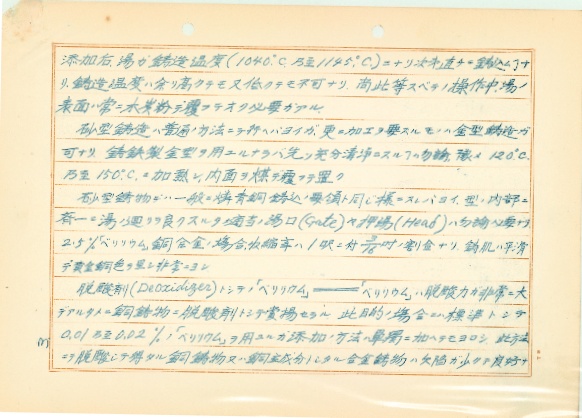 添加后湯ガ鋳造温度(1040°C 乃至1145°C)ニナリ次第直チニ鋳込ムナ
リ.鋳造温度ハ余リ高クテモ又低クテモ不可ナリ 尚此等スベテノ操作中湯ノ
表面ハ常ニ木炭粉デ覆フテオク必要ガアル
砂型鋳造ハ普通ノ方法ニテ行ヘバヨイガ更ニ加工ヲ要スルモノハ金型鋳造ガ
可ナリ 鋳鉄製金型ヲ用ユルナラバ先ヅ充分清浄ニスルハ勿論 豫メ 120°C
乃至150°C.ニ加熱シ内面ヲ煤デ覆フテ置ク
砂型鋳物ニハ一般ニ燐青銅鋳込ノ要領ト同ジ様ニスレバヨイ.型ノ内部ニ
一ニ湯ノ廻リヲ良クスル為適当ノ湯口(Gate)ヤ押湯(Head)ハ勿論必要ナリ
2.5%「ベリリウム」銅合金ノ場合収縮率ハ1呎ニ付3/16吋ノ割合ナリ.鋳肌ハ平滑
デ黄金銅色ヲ呈シ非常ニヨシ
脱酸剤(Deoxidizer)トシテノ「ベリリウム」 「ベリリウム」ハ脱酸力ガ非常ニ大
デアルタメ銅鋳物ニ脱酸剤トシテ賞揚セラル 此目的ノ場合ニハ標準トシテ
0.01乃至0.02%ノ「ベリリウム」ヲ用ユルガ添加ノ方法ハ単独ニ加ヘテモヨロシ 此方法
ニテ脱酸シテ得タル銅鋳物又ハ銅ヲ主成分トシタル合金鋳物ハ欠陥ガ少クテ良好ナ